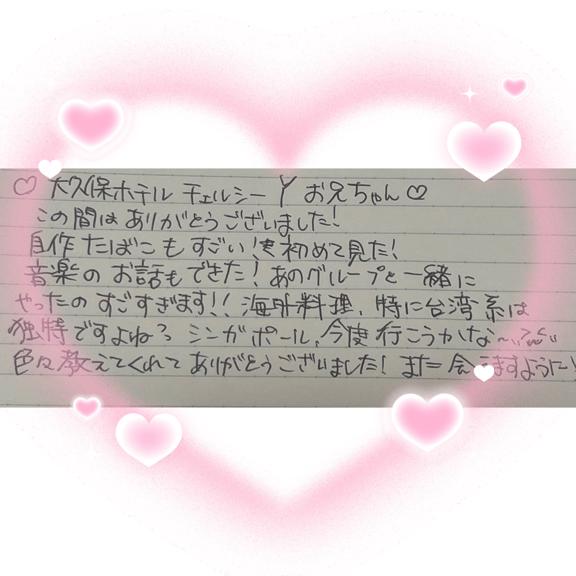 ♡ 大久保ホテル チェルシー Y お兄ちゃん♡
この間はありがとうございました!
自作たばこもすごい! 初めて見た!
音楽のお話もできた! あのグループと一緒に
やったのすごすぎます!! 海外料理、特に台湾系は
独特ですよね? シンガポール、今度行こうかな〜
色々教えてくれてありがとうございました! また会えますように!